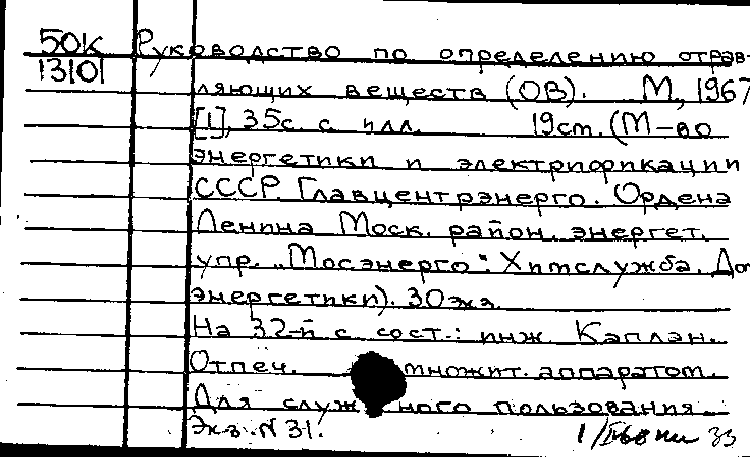 50К Руководство по определению отрав-
13101
ляющих веществ (ОВ). М, 1967
[1], 35с. с илл. 19ст. (М-во
энергетики и электрификации
СССР. Главцентрэнерго. Ордена
Ленина Моск. район. энергет.
упр. "Мосэнерго". Химслужба. Дом
энергетики). 30экз.
На 32-й с сост.: инж. Каплан.
Отпеч. множит. аппаратом.
Для служ ного пользования.
Экз. N 31.